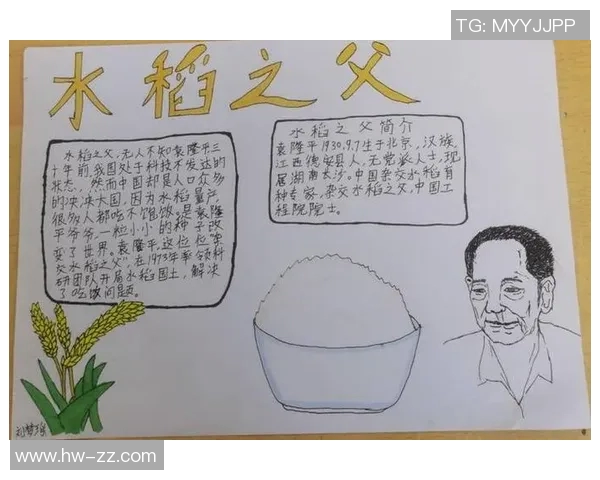 TG: MYYJJPP
水稻之父
水稻之父，无人不知袁隆平三
十年前，我国处于科技不发达的
状态，然而中国却是人口众多
的泱泱大国，因为水稻量产，
很多人都吃不饱饭。是袁隆
平爷爷，一粒小小的种子改
变了世界。袁隆平，这位位"杂
交水稻之父"在1973年率领科
研团队开启水稻国土，解决
了吃饭问题。
水稻之父简介
袁隆平1930.9.7生于北京，汉族，
江西德安县人，无党派人士，现
居湖南长沙。中国杂交水稻育
种专家，杂交水稻之父，中国工
程院院士。
www.hw-zz.com